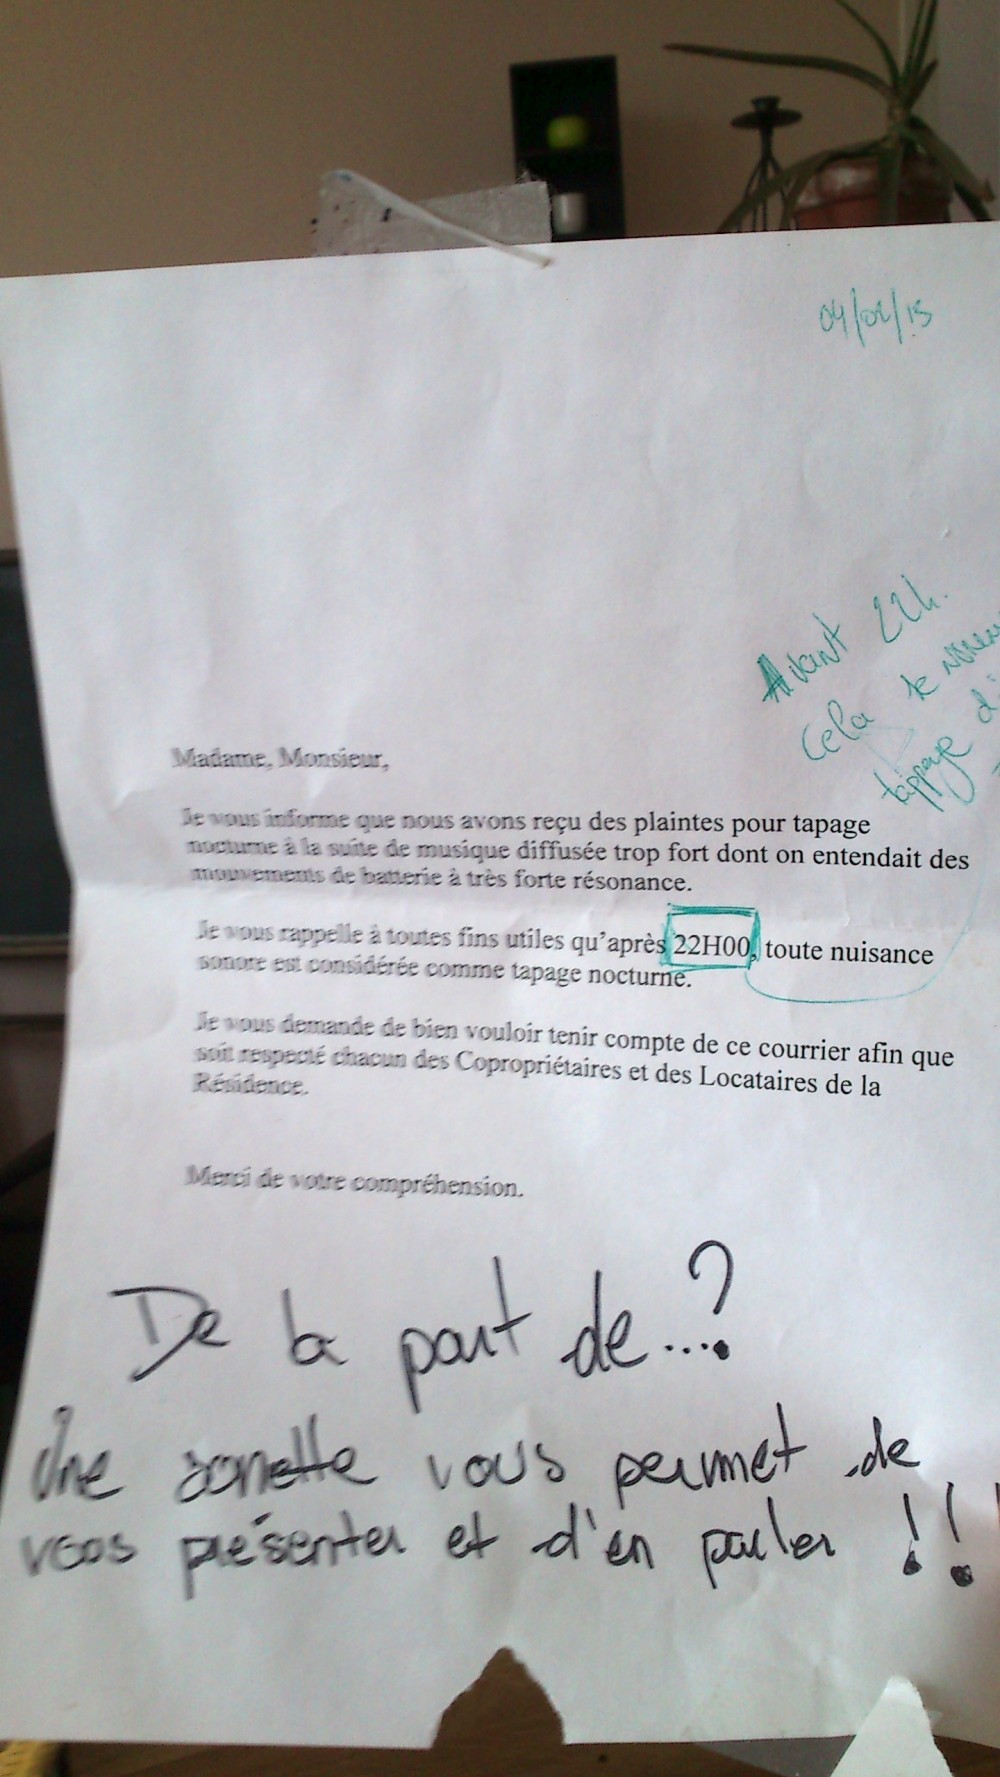 04/02/15
Avant 22h.
Cela se
tappage
Madame, Monsieur,
Je vous informe que nous avons reçu des plaintes pour tapage
nocturne à la suite de musique diffusée trop fort dont on entendait des
mouvements de batterie à très forte résonance.
Je vous rappelle à toutes fins utiles qu'après 22H00, toute nuisance
sonore est considérée comme tapage nocturne.
Je vous demande de bien vouloir tenir compte de ce courrier afin que
soit respecté chacun des Copropriétaires et des Locataires de la
Résidence.
Merci de votre compréhension.
De la part de...?
Une sonette vous permet de
vous présenter et d'en parler !!!